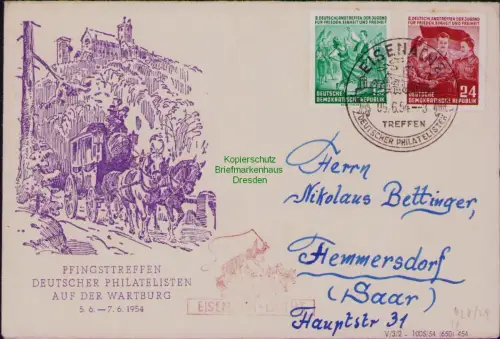 II. DEUTSCHLANDTREFFEN DER JUGEND
FÜR FRIEDEN, EINHEIT UND FREIHEIT
DEUTSCHE
DEMOKRATISCHE REPUBLIK
II. DEUTSCHLANDTREFFEN DER JUGEND
FÜR FRIEDEN, EINHEIT UND FREIHEIT
DEUTSCHE
DEMOKRATISCHE REPUBLIK
24
EISENACH
TREFFEN
DEUTSCHER PHILATELISTEN
Kopierschutz
Briefmarkenhaus
Dresden
Herrn
Nikolaus Bettinger,
Hemmersdorf
(Saar)
Hauptstr 31
PFINGSTTREFFEN
DEUTSCHER PHILATELISTEN
AUF DER WARTBURG
5. 6. – 7. 6. 1954